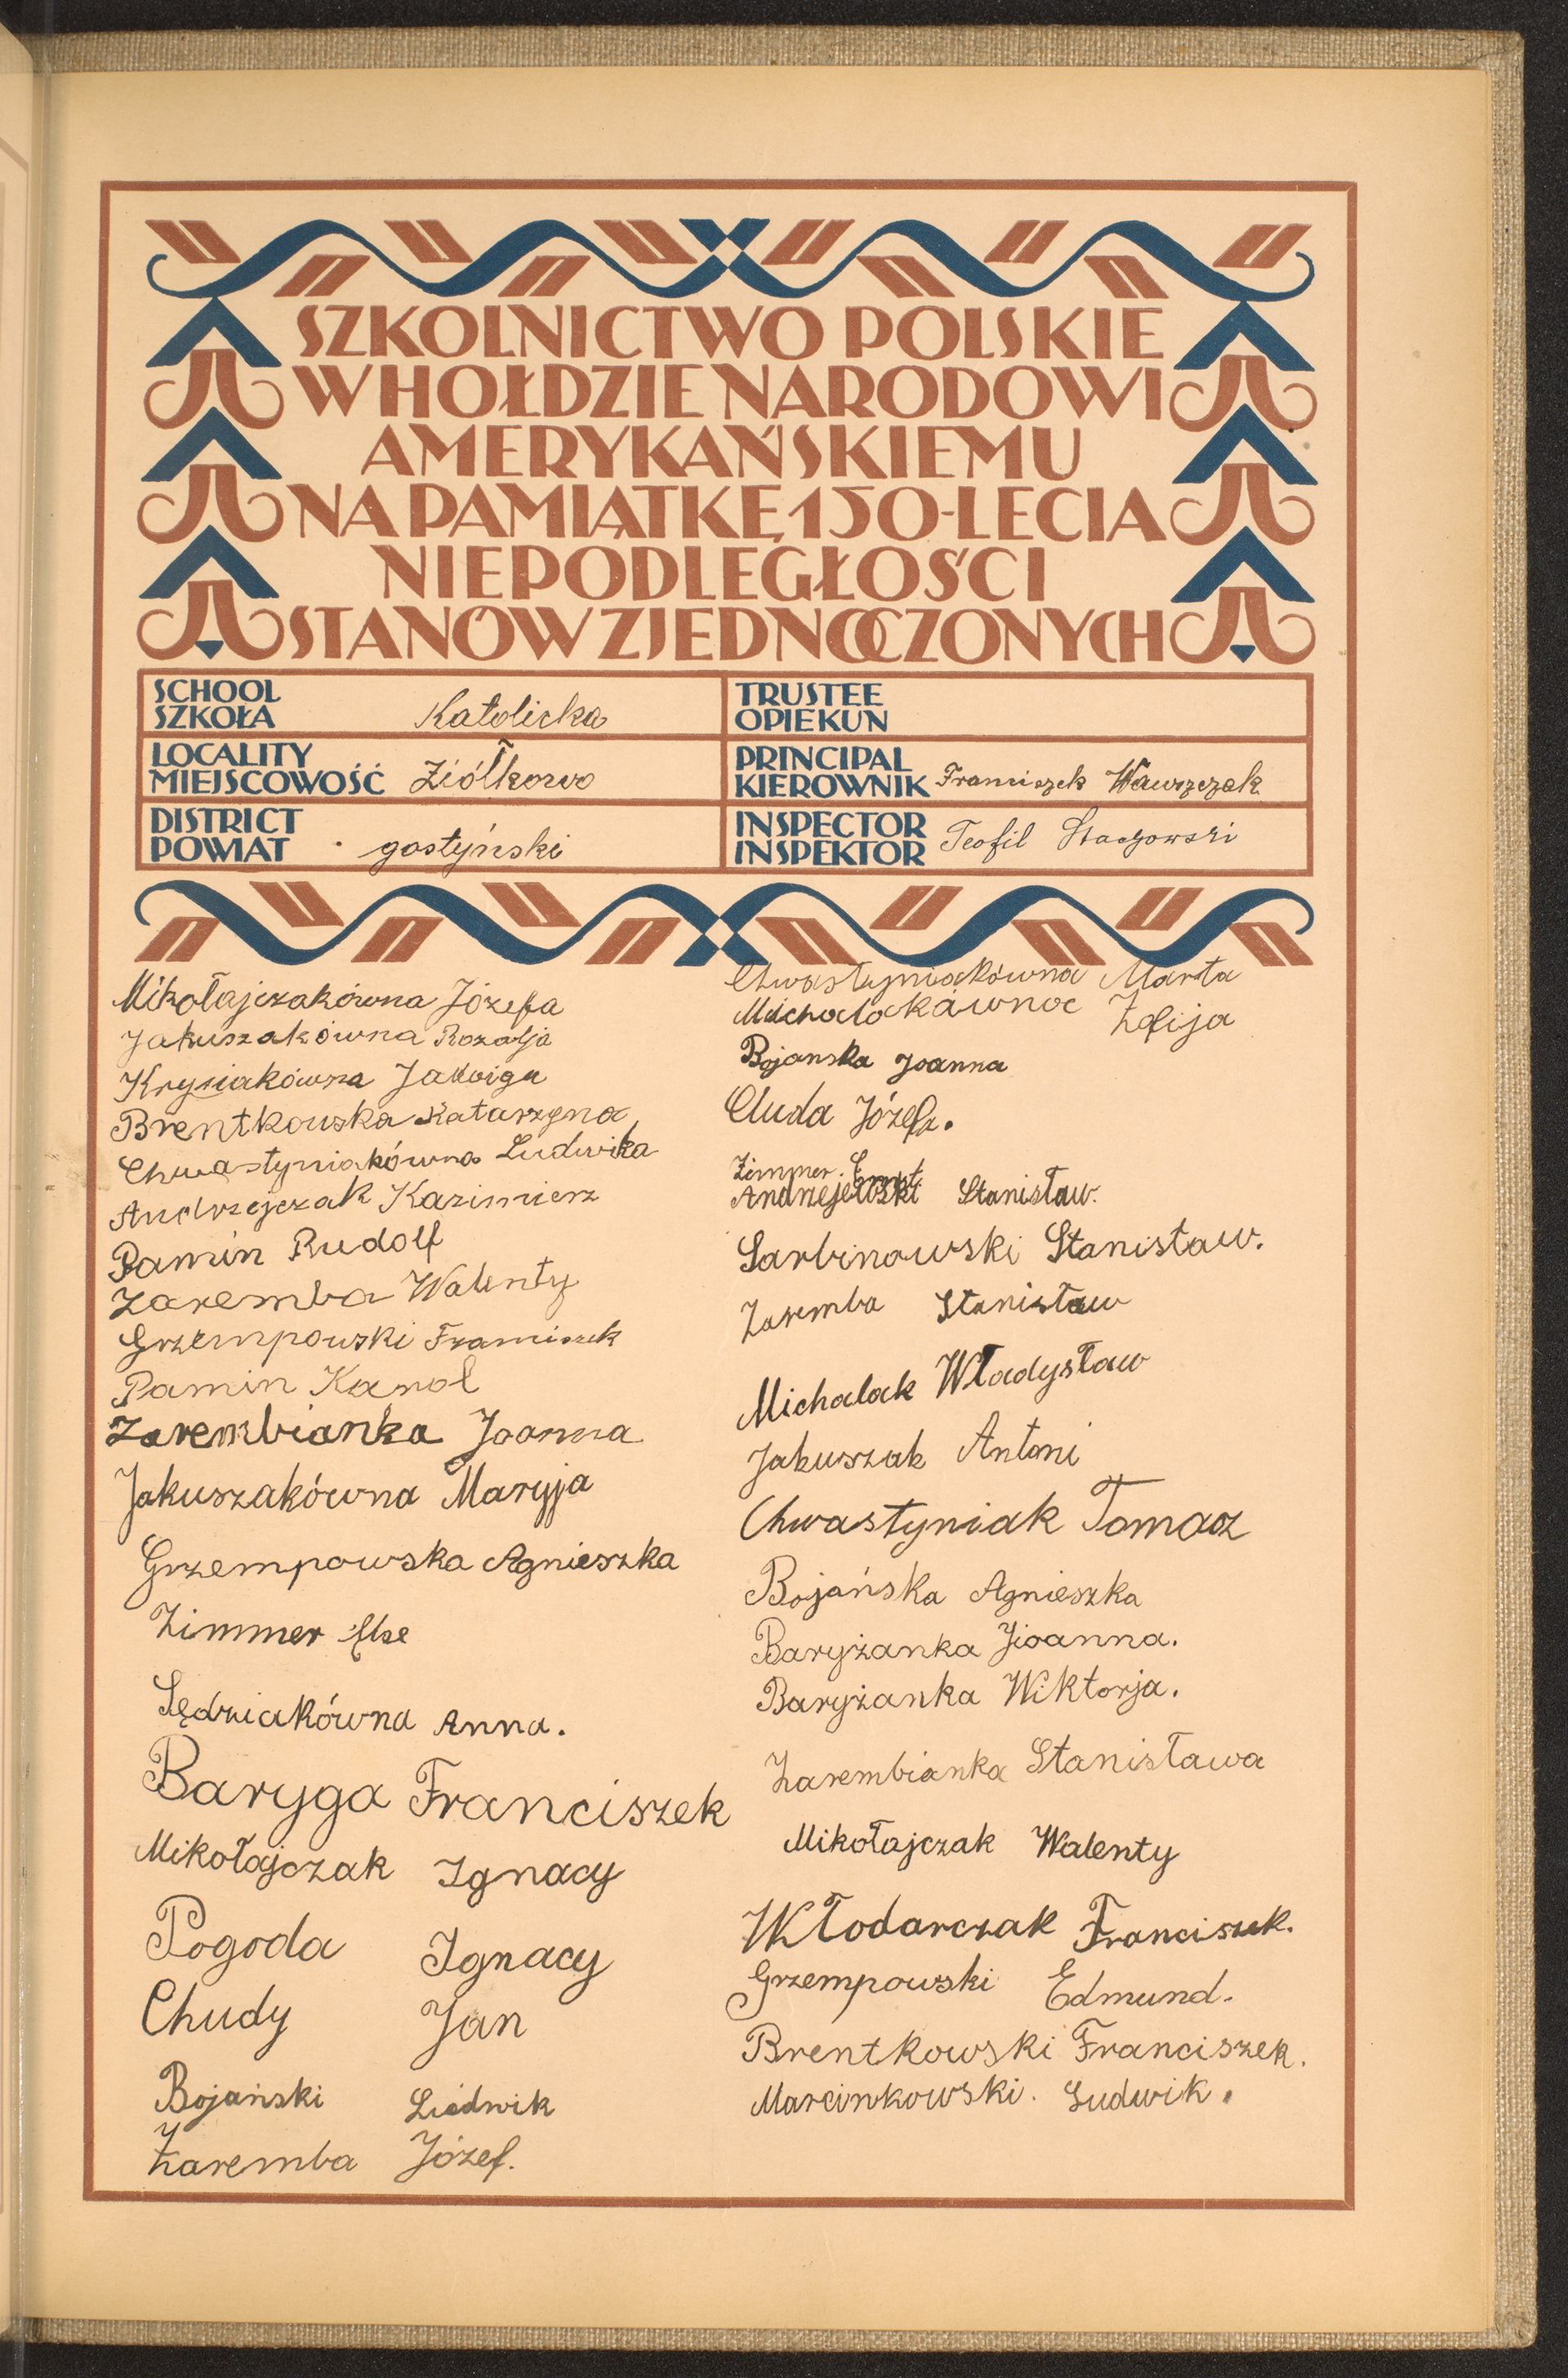 SZKOLNICTWO POLSKIE
W HOŁDZIE NARODOWI
AMERYKAŃSKIEMU
NA PAMIĄTKĘ 150-LECIA
NIEPODLEGŁOŚCI
STANÓW ZJEDNOCZONYCH
SCHOOL
SZKOŁA Katolicka
LOCALITY
MIEJSCOWOŚĆ Ziółkowo
DISTRICT
POWIAT gostyński
TRUSTEE
OPIEKUN
PRINCIPAL
KIEROWNIK Franciszek Wawrzczak
INSPECTOR
INSPEKTOR Teofil Stachowski
Mikołajczakówna Józefa
Jakuszakówna Rozalja
Krysiakówna Jadwiga
Brentkowska Katarzyna
Chwastyniakówna Ludwika
Andrzejczak Kazimierz
Pamin Rudolf
Zaremba Walenty
Grzempowski Franciszek
Pamin Karol
Zarembianka Joanna
Jakuszakówna Maryja
Grzempowska Agnieszka
Zimmer Else
Sędziakówna Anna.
Baryga Franciszek
Mikołajczak Ignacy
Pogoda Ignacy
Chudy Jan
Bojański Ludwik
Zaremba Józef.
Chwastyniakówna Marta
Michalakówna Zofija
Bojanska Joanna
Chuda Józefa.
Zimmer Ernst
Andrzejewski Stanisław.
Sarbinowski Stanisław.
Zaremba Stanisław
Michalak Władysław
Jakuszak Antoni
Chwastyniak Tomasz
Bojańska Agnieszka
Baryżanka Joanna.
Baryżanka Wiktorja.
Zarembianka Stanisława
Mikołajczak Walenty
Włodarczak Franciszek.
Grzempowski Edmund.
Brentkowski Franciszek.
Marcinkowski. Ludwik.